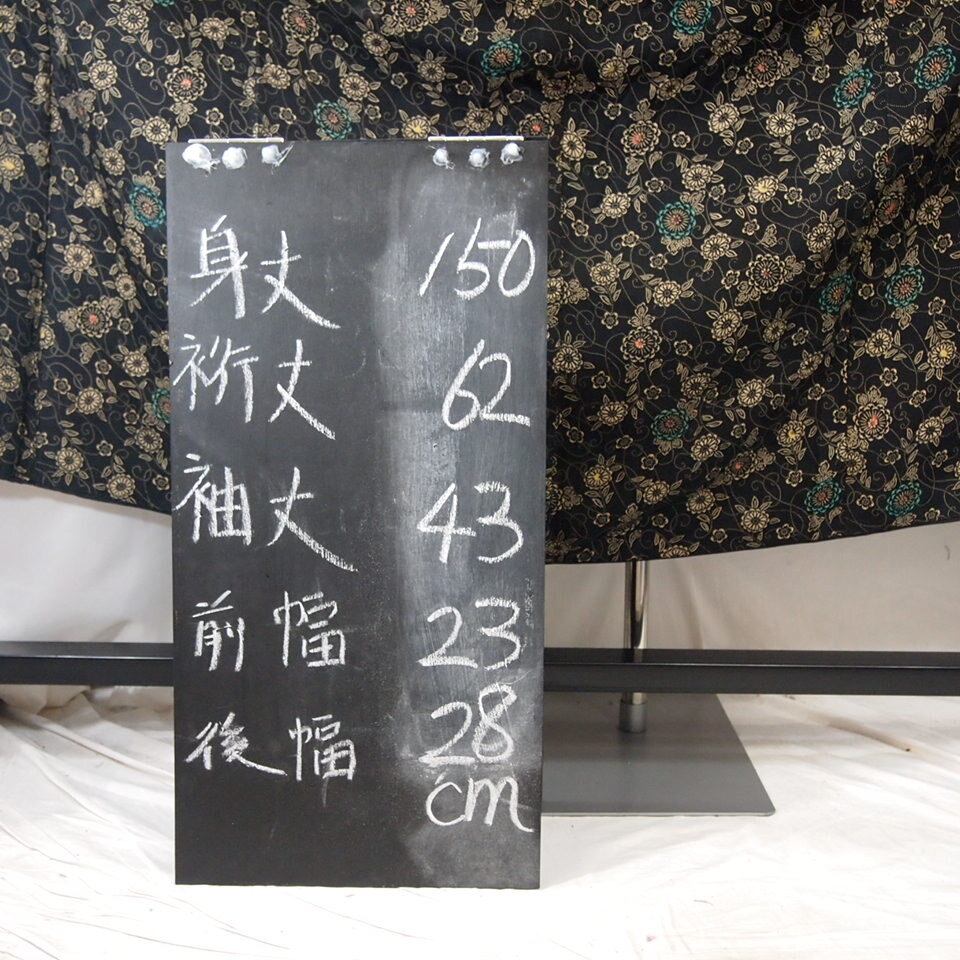 身丈 150
裄丈 62
袖丈 43
前幅 23
後幅 28
cm